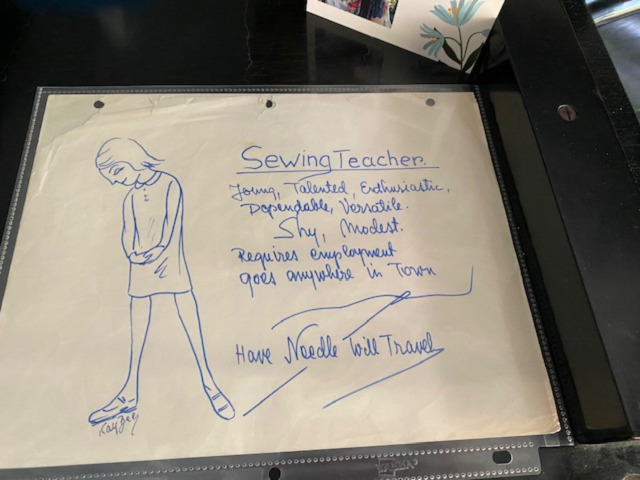 Sewing Teacher.
Young, Talented, Enthusiastic,
Dependable, Versatile.
Shy, Modest.
Requires employment
goes anywhere in Town
Have Needle Will Travel